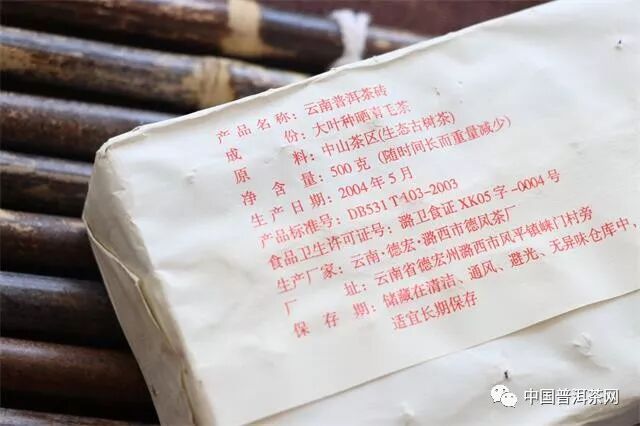 产品名称：云南普洱茶砖
成 份：大叶种晒青毛茶
原 料：中山茶区(生态古树茶)
净 含 量：500克（随时间长而重量减少）
生产日期：2004年5月
产品标准号：DB531 T·103-2003
食品卫生许可证号：潞卫食证 XK05字-0004号
生产厂家：云南·德宏·潞西市德凤茶厂
厂 址：云南省德宏州潞西市风平镇崃门村旁
保 存 期：储藏在清洁、通风、避光、无异味仓库中，
适宜长期保存
中国普洱茶网